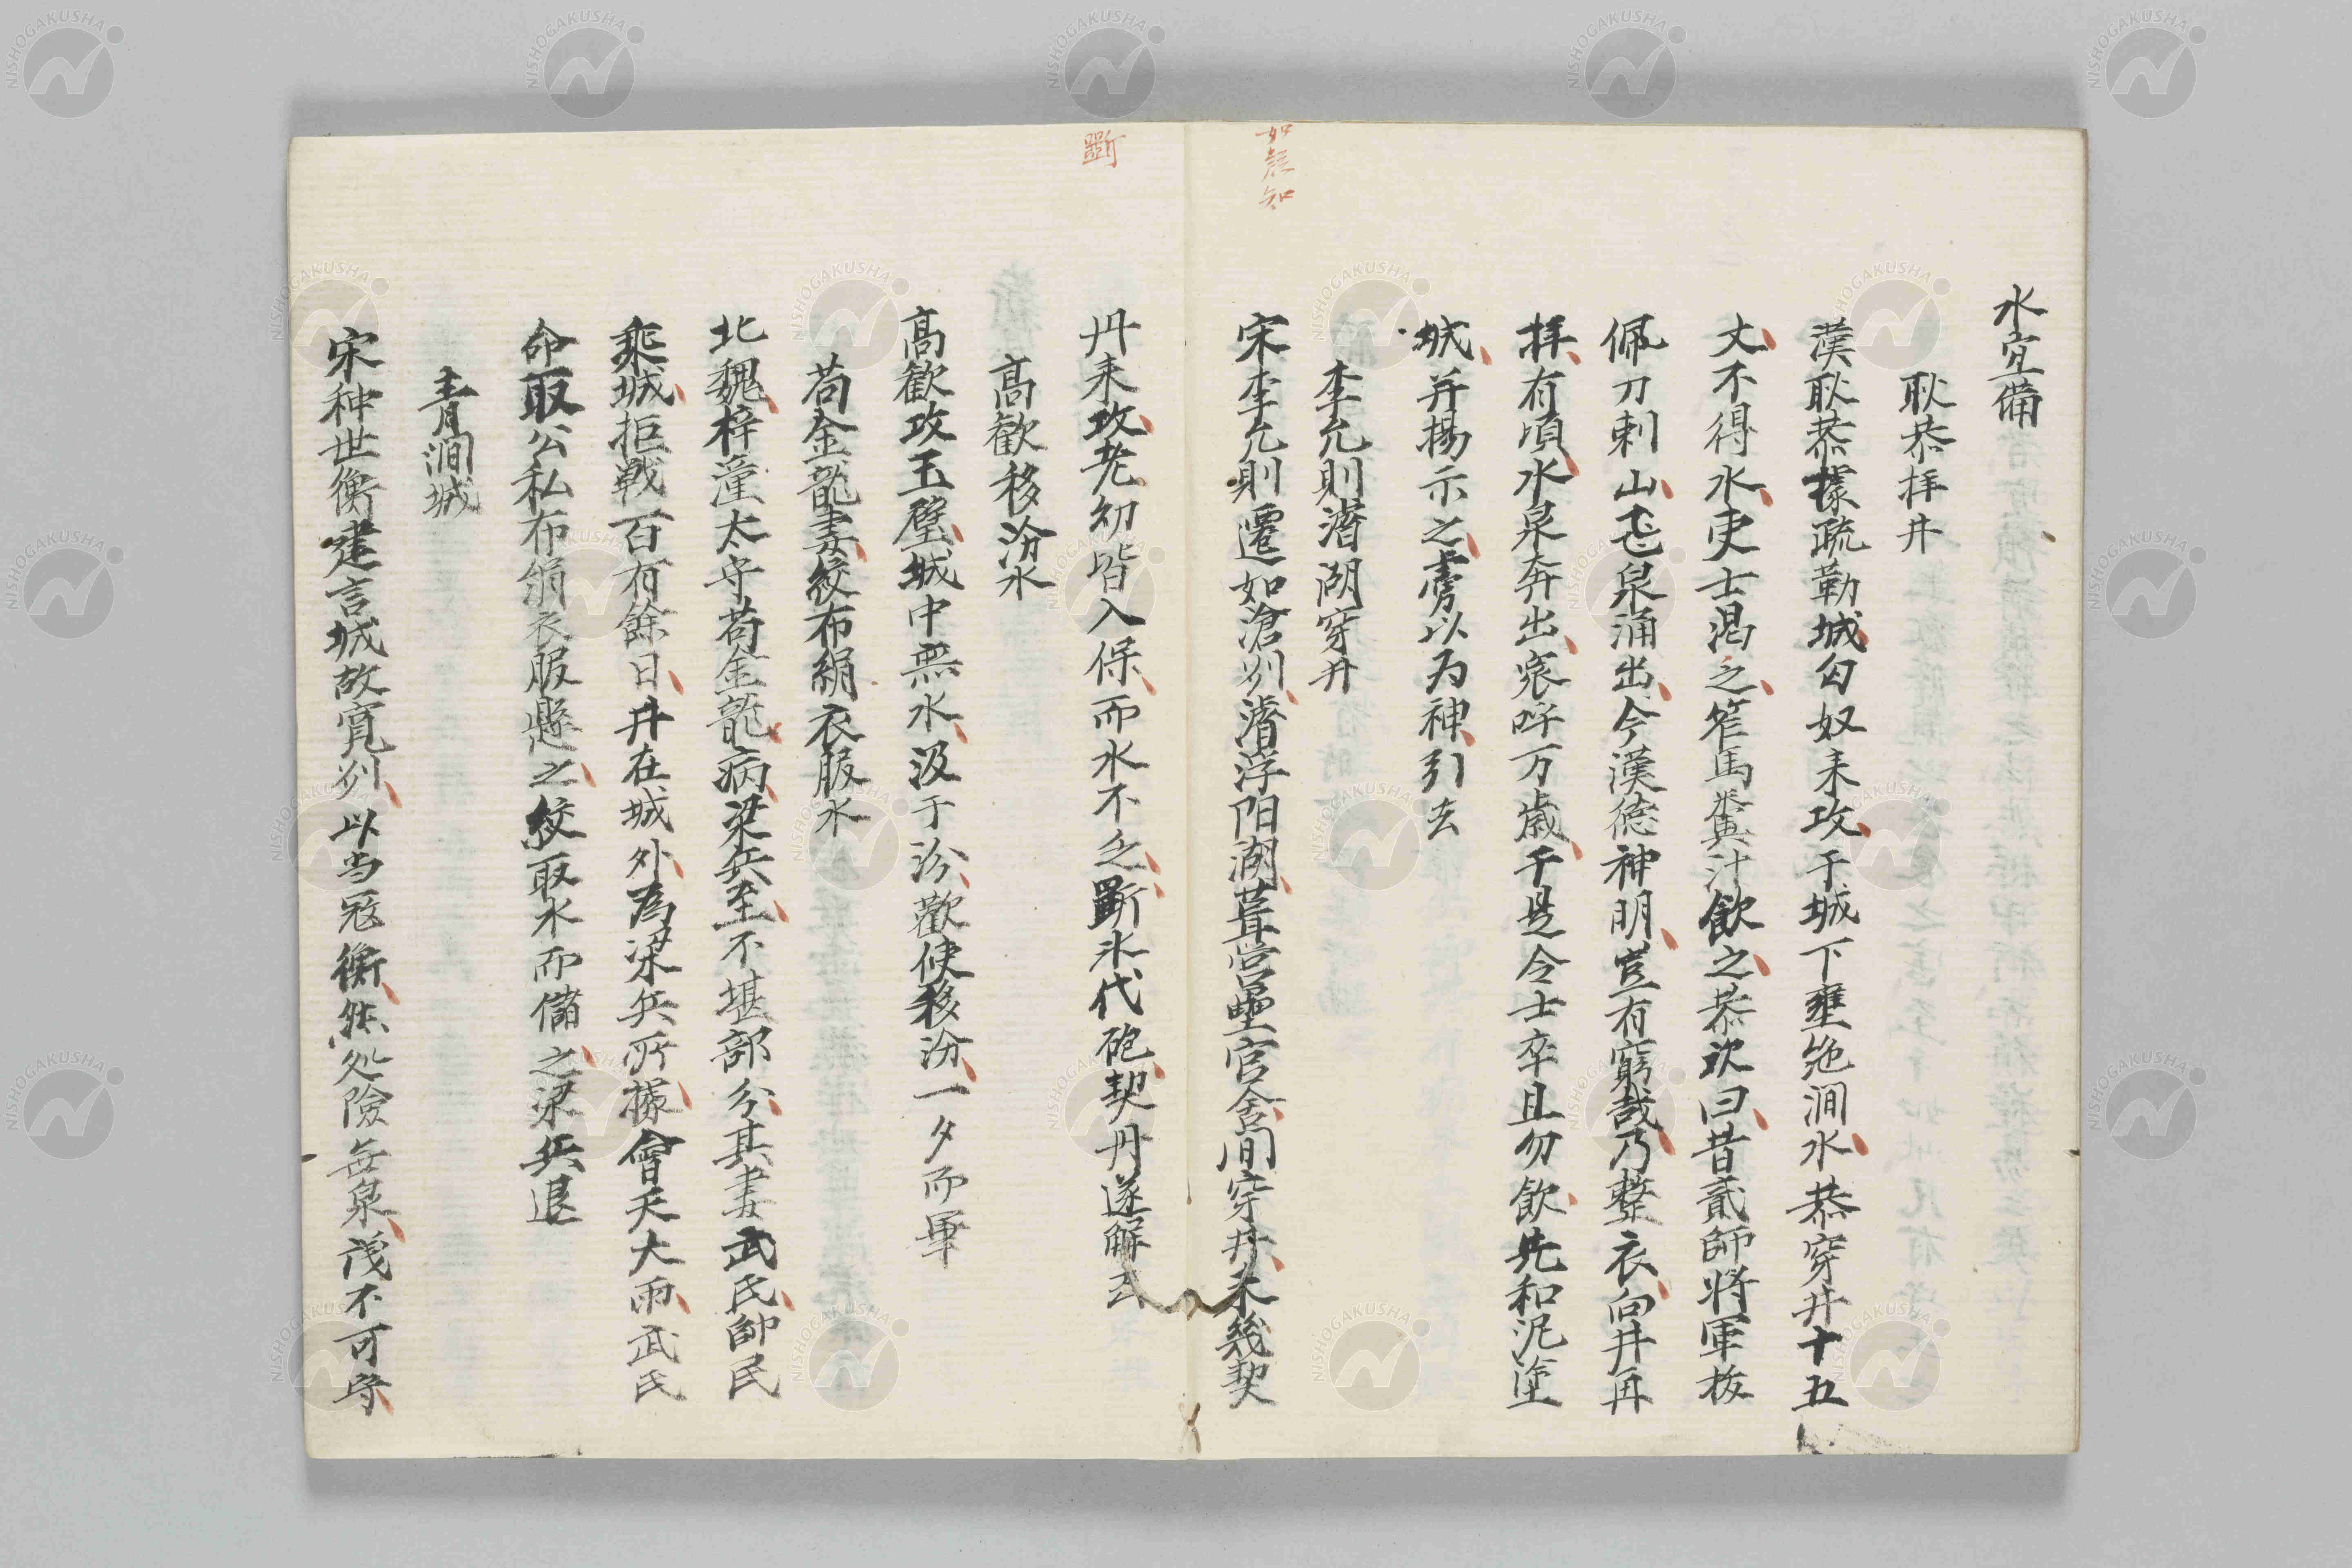 水宜備
耿恭拝井
漢耿恭據疏勒城匈奴来攻于城下壅绝澗水恭穿井十五
丈不得水吏士渇之笮馬糞汁飲之恭欤曰昔貳師将軍抜
佩刀刺山飞泉涌出今漢徳神明豈有窮哉乃整衣向井再
拝有頃水泉奔出衆呼万歳于是令士卒且勿飲先和泥塗
城并揚示之虜以为神引去
李允則濬湖穿井
如
知
宋李允則遷如滄州濬浮阳湖葺営壘官舎间穿井未幾契
斵
丹来攻老幼皆入保而水不乏斵氷代砲契丹遂解去
高歓移汾水
高歓攻玉壁城中無水汲于汾歓使移汾一夕而畢
苟金龍妻絞布絹衣服水
北魏梓潼太守苟金龍病梁兵至不堪部分其妻武氏帥民
乘城拒戦百有餘日井在城外為梁兵所據會天大雨武氏
命取公私布絹衣服懸之絞取水而儲之梁兵退
青澗城
宋种世衡建言城故寛州以当寇衡然処険無泉議不可守